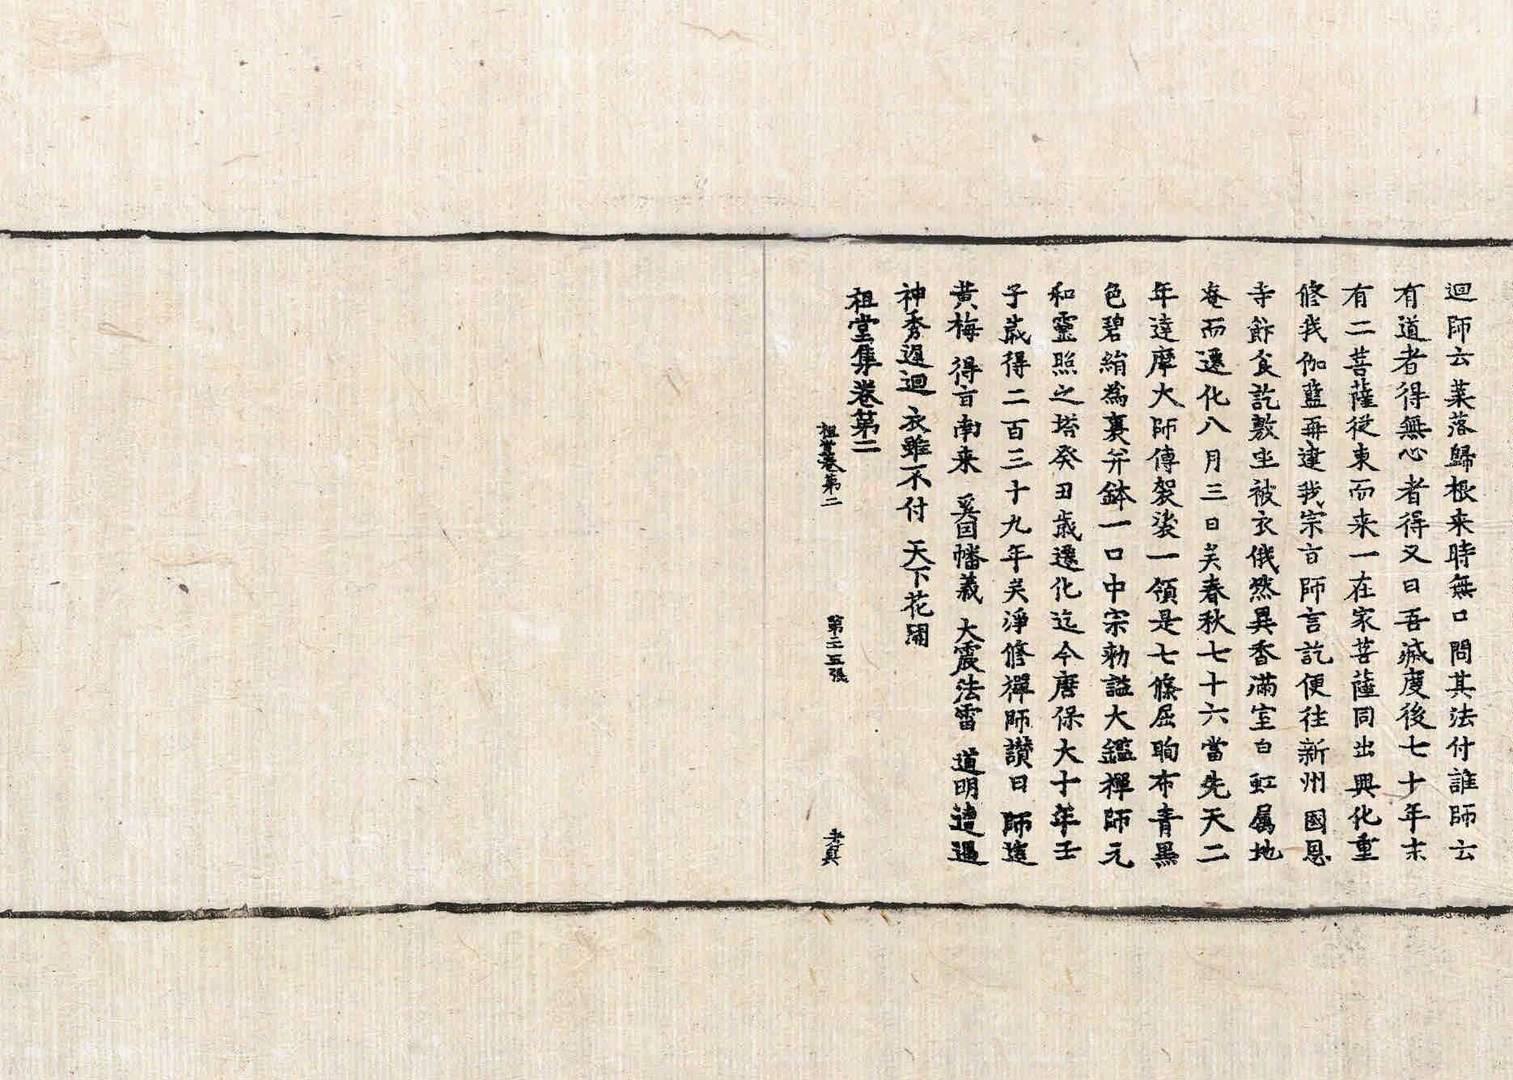 迴師云葉落歸根来時無口問其法付誰師云
有道者得無心者得又曰吾滅度後七十年末
有二菩薩從東而来一在家菩薩同出興化重
修我伽藍再建我宗旨師言訖便往新州國恩
寺飰食訖敷坐被衣俄然異香滿室白虹属地
奄而遷化八月三日矣春秋七十六當先天二
年達摩大師傳袈裟一領是七條屈眴布青黑
色碧絹為裏并鉢一口中宗勑謚大鑑禪師元
和靈照之塔癸丑歲遷化迄今唐保大十年壬
子歲得二百三十九年矣淨修禪師讃曰 師造
黃梅 得旨南来 奚因幡義 大震法雷 道明遭遇
神秀遲迴 衣雖不付 天下花開
祖堂集卷第二
祖堂卷第二 第二十五張 孝真